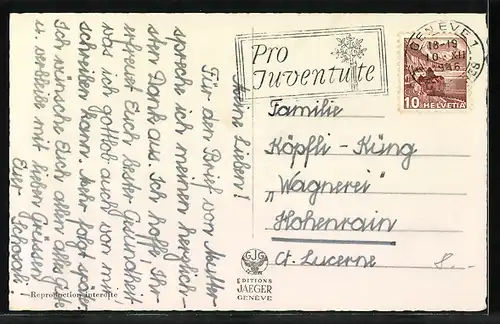 Meine Lieben!
Für den Brief von Mutter
spreche ich meinen herzlich-
sten Dank aus. Ich hoffe, Ihr
erfreuet Euch bester Gesundheit
was ich gottlob auch von mir
schreiben kann. Mehr folgt später.
Ich wünsche Euch allen alles Gute
u. verbleibe mit lieben Grüssen
Euer
Reproduction interdite
Pro
Juventute
GENÈVE 1
18-19
10. XII
10 HELVETIA
Familie
Köpfli-Küng
„Wagnerei"
Hohenrain
Ct. Lucerne
EDITIONS
JAEGER
GENÈVE